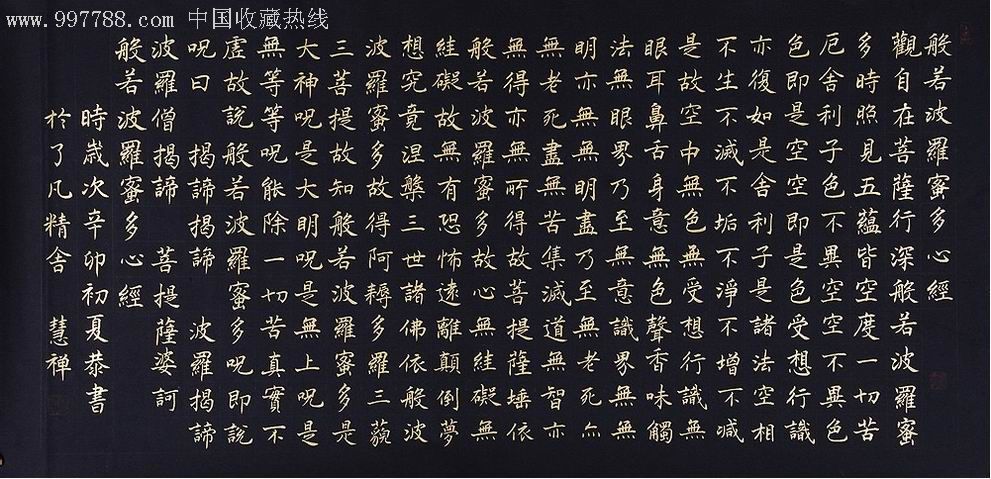 www.997788.com 中国收藏热线
般若波羅蜜多心經
觀自在菩薩行深般若波羅蜜
多時照見五蘊皆空度一切苦
厄舍利子色不異空空不異色
色即是空空即是色受想行識
亦復如是舍利子是諸法空相
不生不滅不垢不淨不增不減
是故空中無色無受想行識無
眼耳鼻舌身意無色聲香味觸
法無眼界乃至無意識界無無
明亦無無明盡乃至無老死亦
無老死盡無苦集滅道無智亦
無得亦無所得故菩提薩埵依
般若波羅蜜多故心無絓礙無
絓礙故無有恐怖遠離顛倒夢
想究竟涅槃三世諸佛依般波
波羅蜜多故得阿耨多羅三藐
三菩提故知般若波羅蜜多是
大神呪是大明呪是無上呪是
無等等呪能除一切苦真實不
虛故說般若波羅蜜多呪即說
呪曰 揭諦揭諦 波羅揭諦
波羅僧揭諦 菩提薩婆訶
般若波羅蜜多心經
時歲次辛卯初夏恭書
於了凡精舍 慧禅